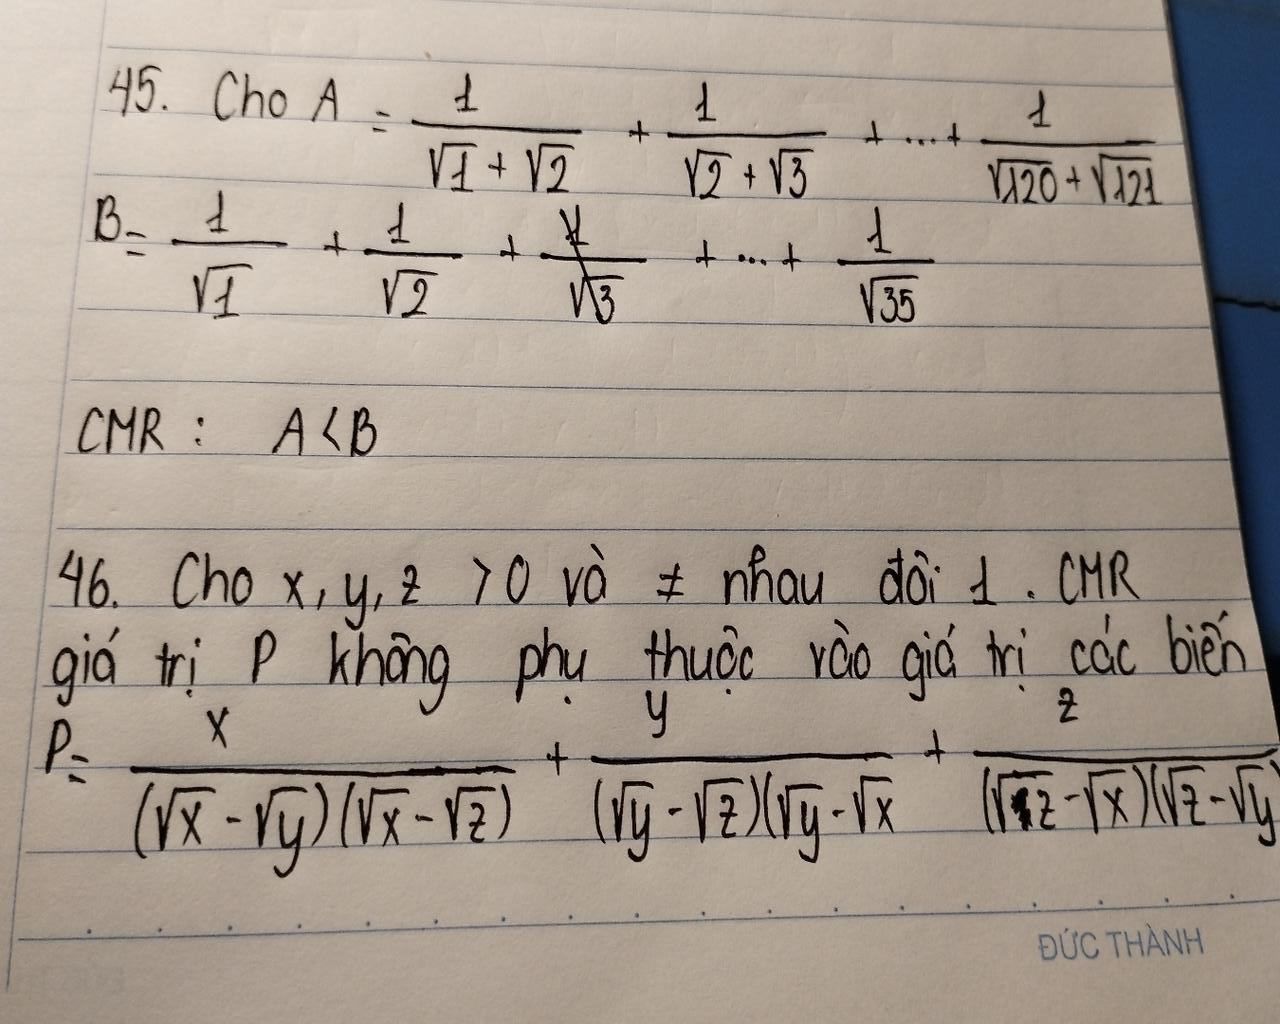 45. Cho A = 1/(√1 + √2) + 1/(√2 + √3) + ... + 1/(√120 + √121)
B = 1/√1 + 1/√2 + 1/√3 + ... + 1/√35
CMR : A < B
46. Cho x, y, z > 0 và ≠ nhau đôi 1. CMR
giá trị P không phụ thuộc vào giá trị các biến
P = x/((√x - √y)(√x - √z)) + y/((√y - √z)(√y - √x) + z/((√z - √x)(√z - √y)
ĐỨC THÀNH